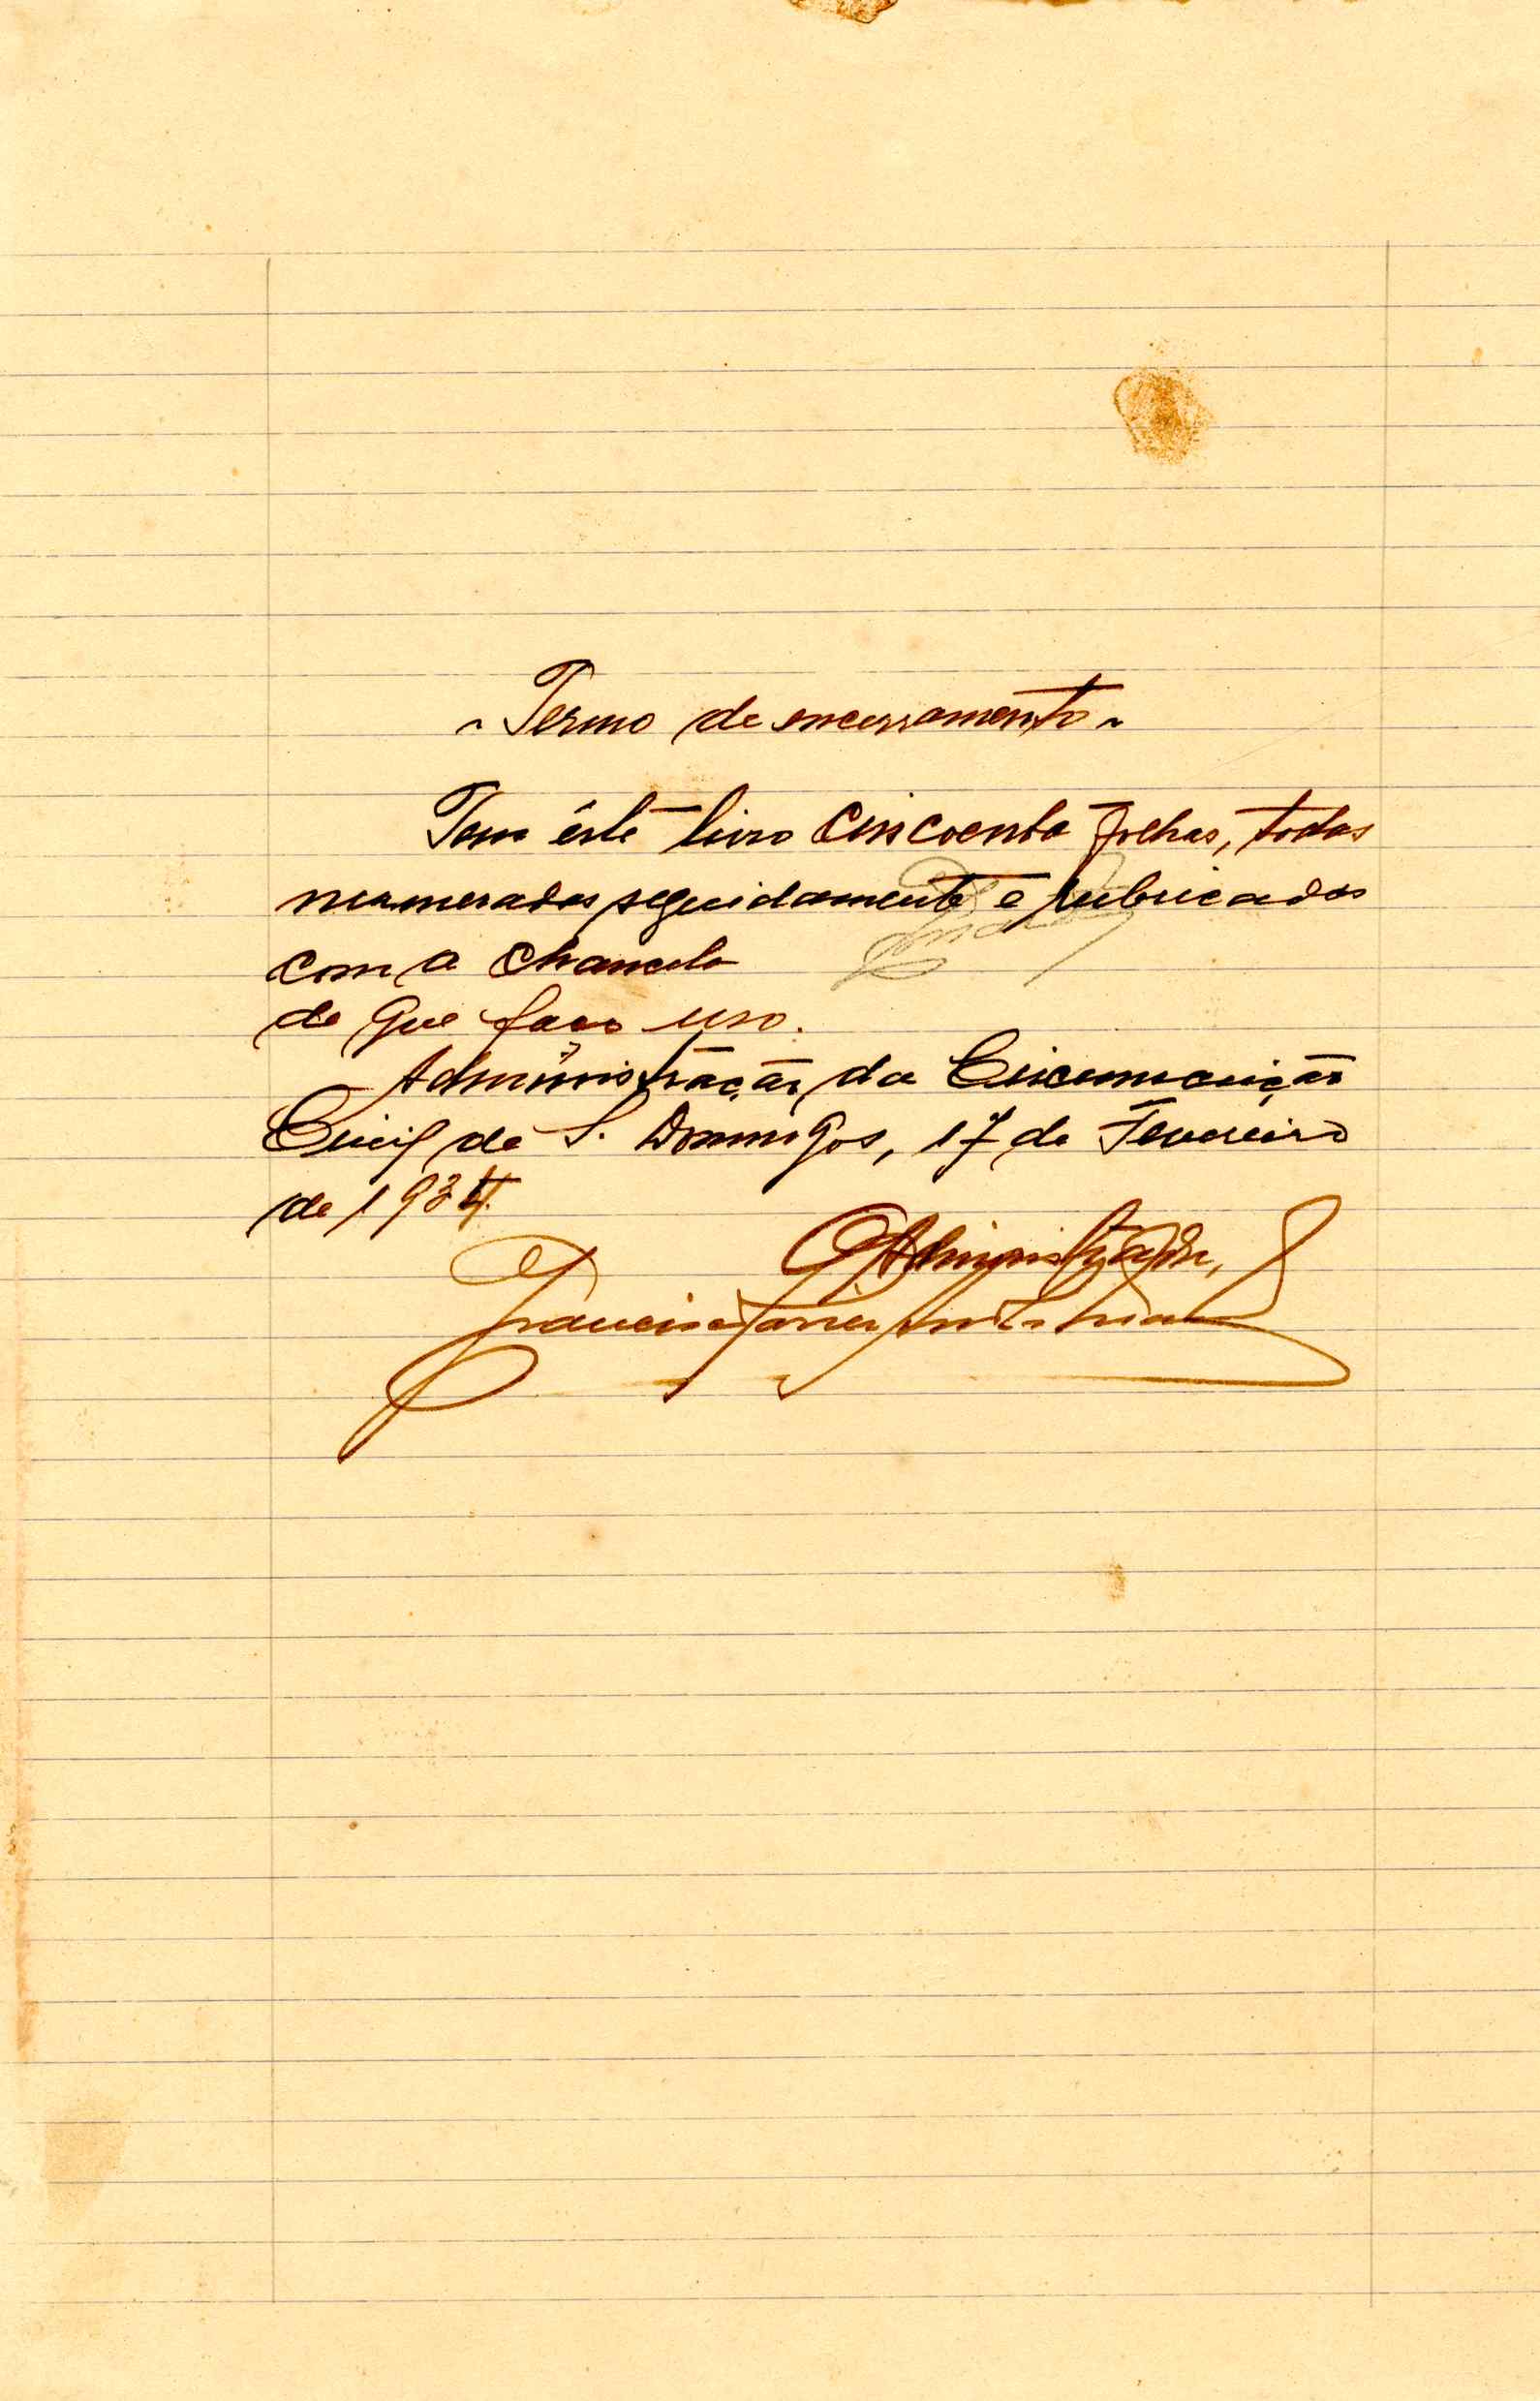 Termo de encerramento
Tem êste livro cincoenta folhas, todas
numeradas seguidamente e rubricadas
com a chancela
de que faço uso.
Administração da Circunscrição
Civil de S. Domingos, 17 de Fevereiro
de 1934.
O Administrador,
Francisco Xavier